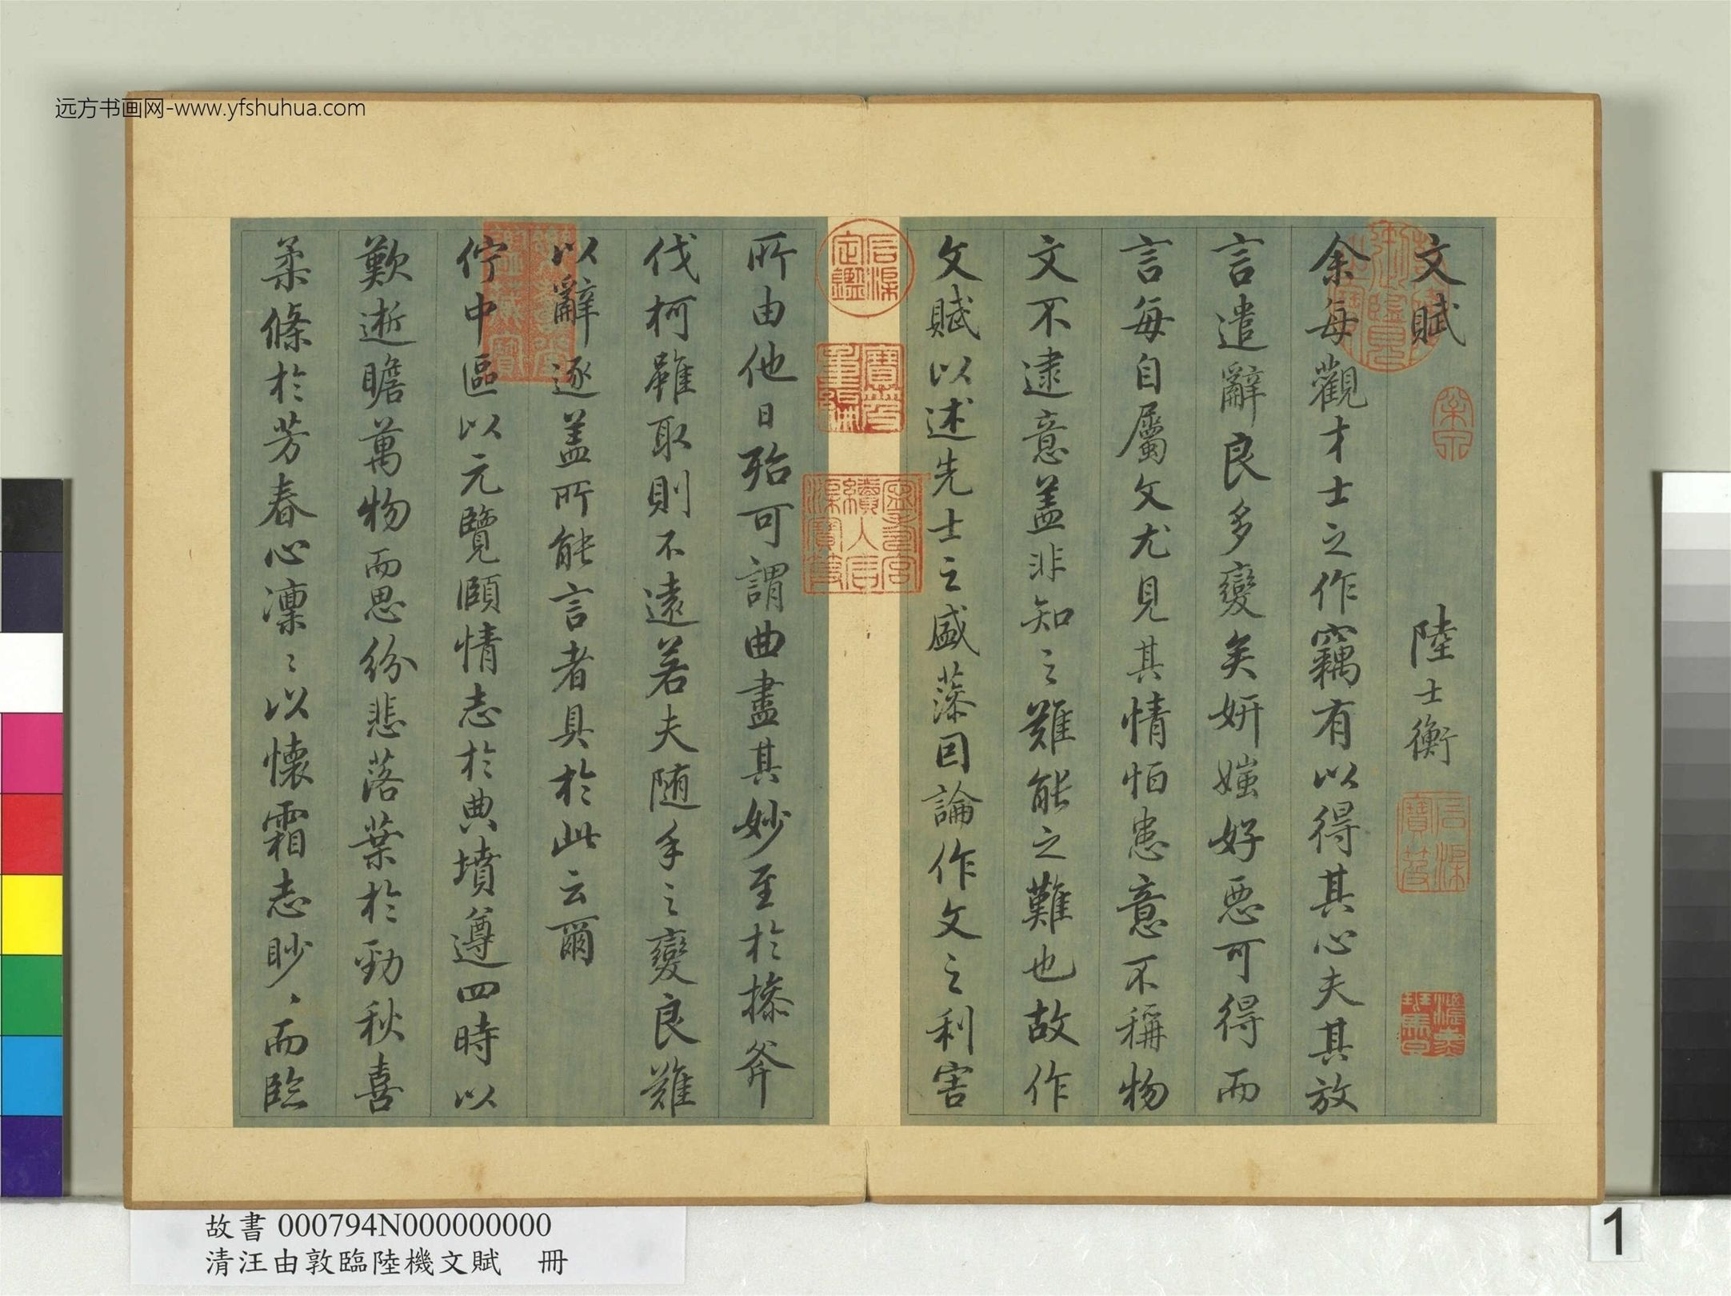 远方书画网-www.yfshuhua.com
文賦 陸士衡
余每觀才士之作竊有以得其心夫其放
言遣辭良多變矣妍媸好惡可得而
言每自屬文尤見其情怕患意不稱物
文不逮意盖非知之難能之難也故作
文賦以述先士之盛藻因論作文之利害
所由他日殆可謂曲盡其妙至於操斧
伐柯雖取則不遠若夫随手之變良難
以辭逐盖所能言者具於此云爾
佇中區以元覽頤情志於典墳遵四時以
歎逝瞻萬物而思紛悲落葉於勁秋喜
柔條於芳春心凛〻以懷霜志眇〻而臨
石渠定鑑
寶笈重編
石渠寶笈
故書 000794N000000000
清汪由敦臨陸機文賦 冊
1